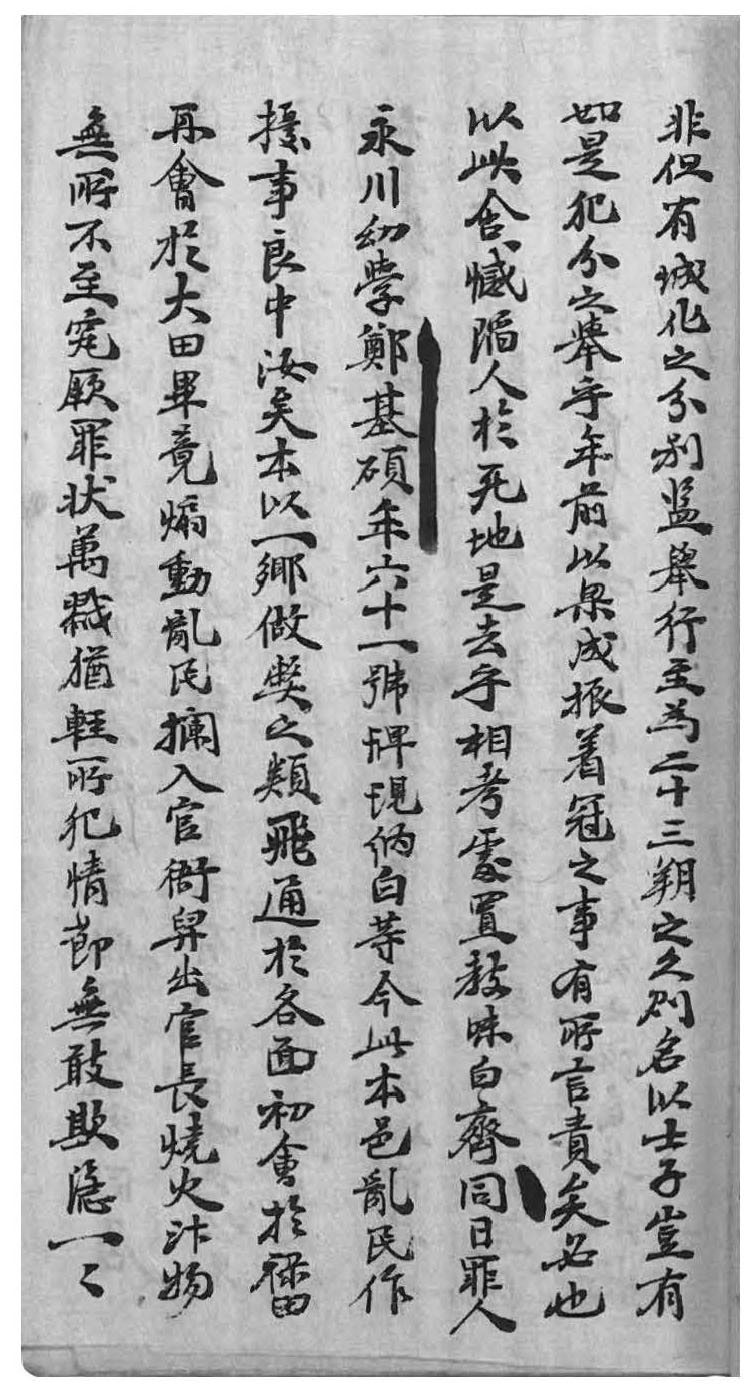 非但有城化之分別監擧行至為二十三朔之久則名以士子豈有
如是犯分之擧乎年前以渠成振着冠之事有所言責矣必也
以此含憾陷人於死地是去乎相考處置敎味白齊同日罪人
永川幼學鄭基碩年六十一號牌現納白等今此本邑亂民作
擾事良中汝矣本以一鄕做獘之類飛通於各面初會於
再會於大田畢竟煽動亂民攔入官衙舁出官長燒火汁物
無所不至究厥罪状萬戮猶輕所犯情節無敢欺隱一々